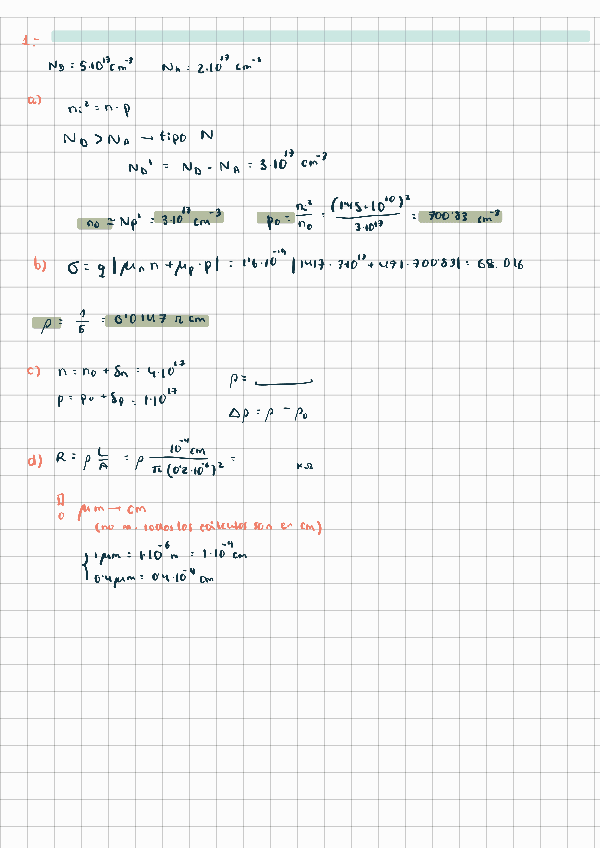 1.-
N_D = 5·10¹⁷ cm⁻³   N_A = 2·10¹⁷ cm⁻³
a)
nᵢ² = n·p
N_D > N_A → tipo N
N_D' = N_D - N_A = 3·10¹⁷ cm⁻³
n₀ ≅ N_D' = 3·10¹⁷ cm⁻³   p₀ = nᵢ²/n₀ = (1'45·10¹⁰)²/3·10¹⁷ = 700'83 cm⁻³
b) σ = q |μₙ n + μₚ · p| = 1'6·10⁻¹⁹ |1417 · 3·10¹⁷ + 471 · 700'83| = 68.016
ρ = 1/σ = 0'0147 Ω cm
c) n = n₀ + δₙ = 4·10¹⁷
p = p₀ + δₚ = 1·10¹⁷
ρ =
Δρ = ρ - ρ₀
d) R = ρ L/A = ρ 10⁻⁴ cm/π(0'2·10⁻⁶)² =   KΩ
μm → cm
(no m. todos los cálculos son en cm)
1 μm = 1·10⁻⁶ m = 1·10⁻⁴ cm
0'4 μm = 0'4·10⁻⁴ cm